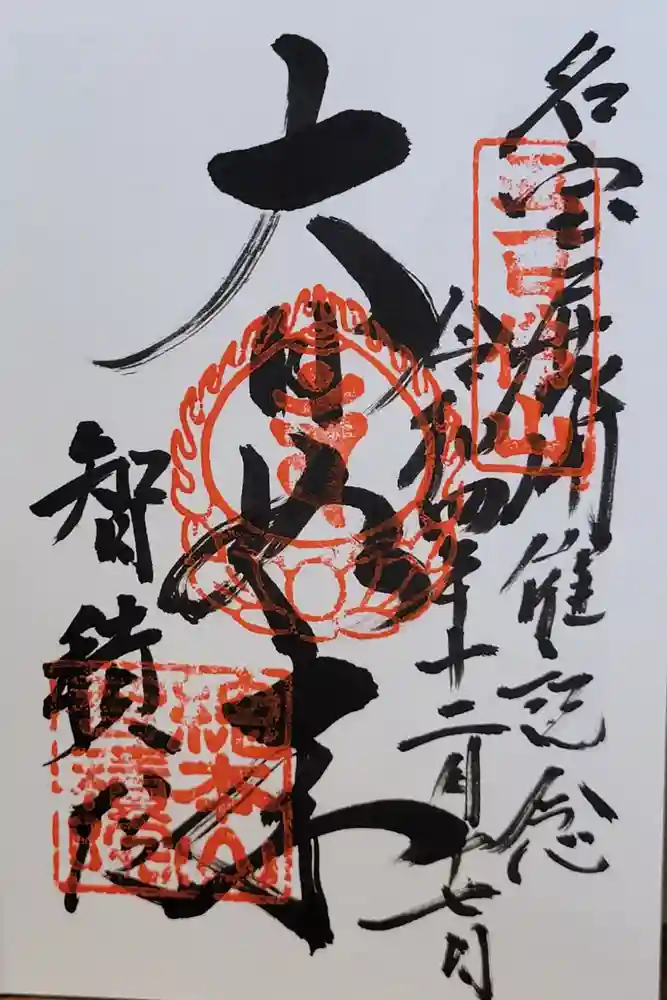 名宝展開催記念
五百佛山
令和四年十二月十七日
大日如来
智積院
總本山
智積院